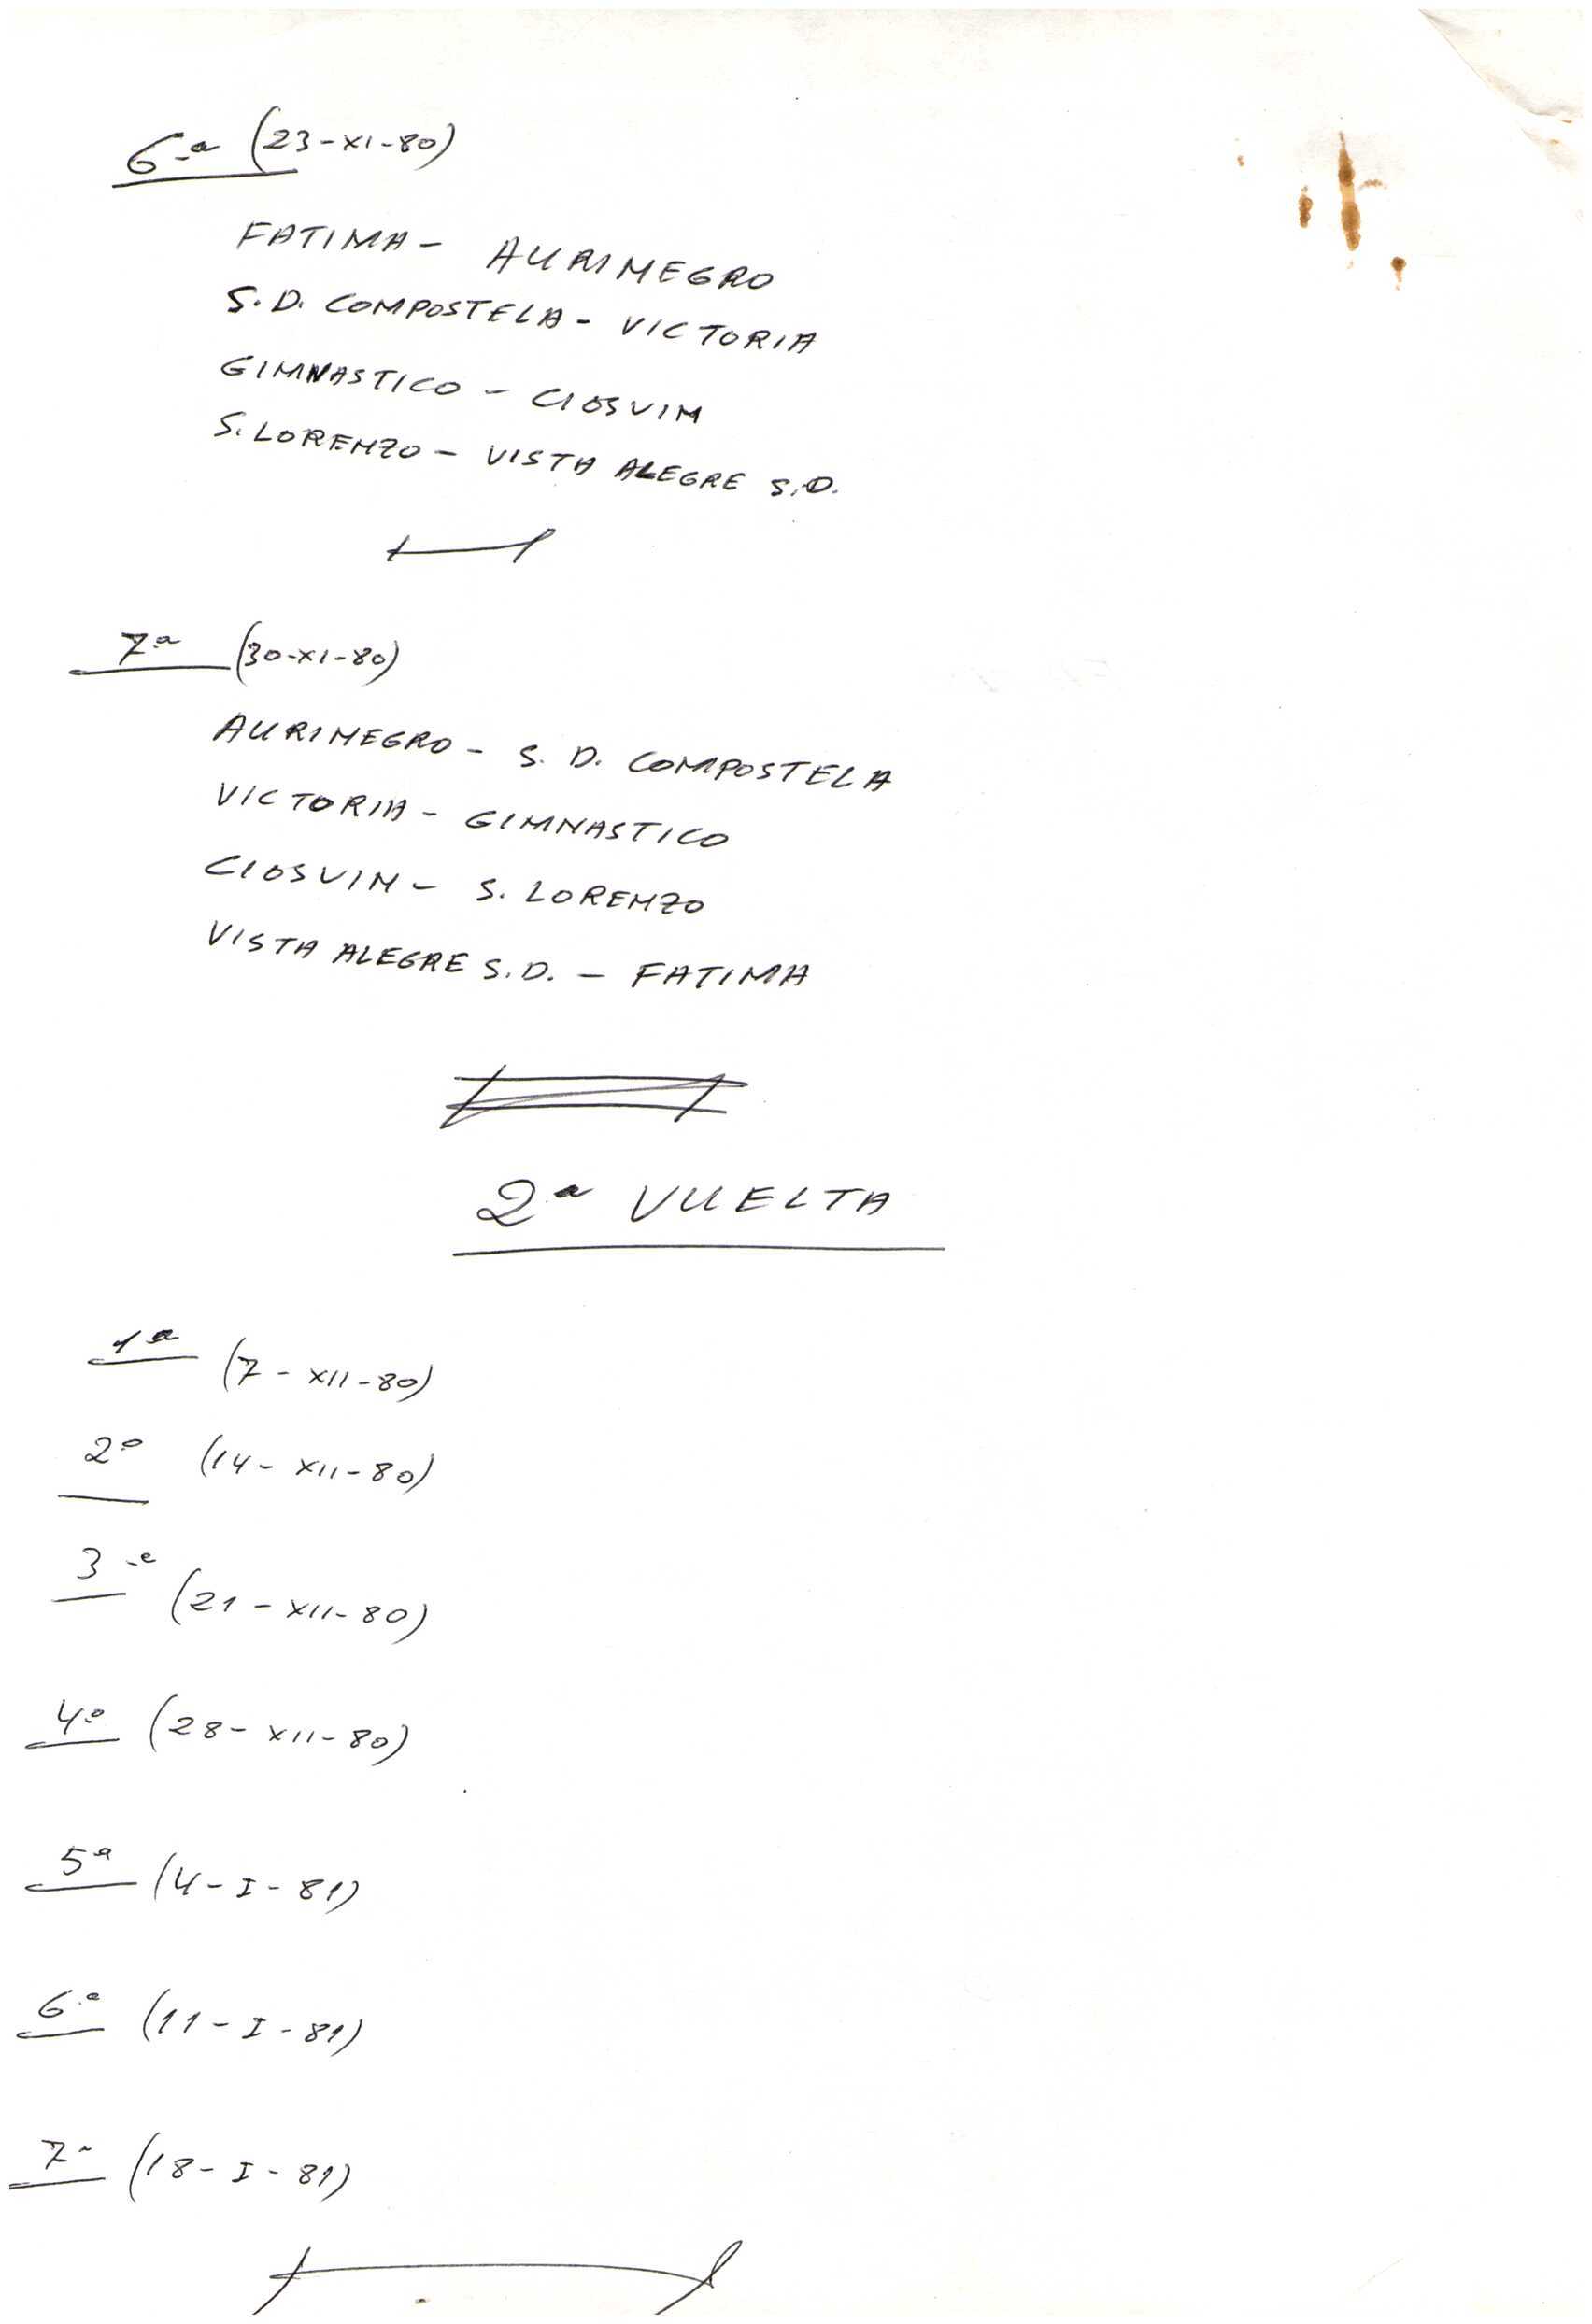 6.ª (23-XI-80)
FATIMA - AURINEGRO
S.D. COMPOSTELA - VICTORIA
GIMNASTICO - CIOSVIN
S. LORENZO - VISTA ALEGRE S.D.
7.ª (30-XI-80)
AURINEGRO - S. D. COMPOSTELA
VICTORIA - GIMNASTICO
CIOSVIN - S. LORENZO
VISTA ALEGRE S.D. - FATIMA
2.ª VUELTA
1ª (7-XII-80)
2ª (14-XII-80)
3.ª (21-XII-80)
4ª (28-XII-80)
5ª (4-I-81)
6.ª (11-I-81)
7ª (18-I-81)